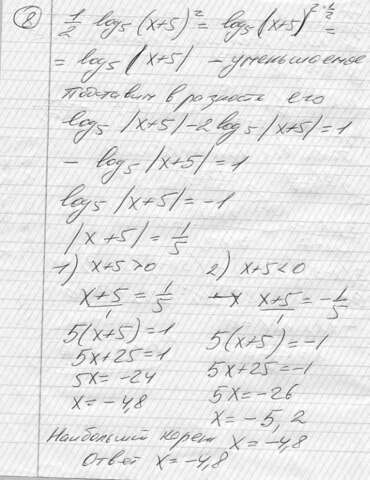 8 1/2 log₅ (x+5)² = log₅ (x+5)^(2·1/2) =
= log₅ |x+5| – уменьшаемое
Подставим в разность его
log₅ |x+5| - 2 log₅ |x+5| = 1
- log₅ |x+5| = 1
log₅ |x+5| = -1
|x+5| = 1/5
1) x+5>0 2) x+5<0
(x+5)/1 = 1/5 (x+5)/1 = -1/5
5(x+5)=1 5(x+5)=-1
5x+25=1 5x+25=-1
5x=-24 5x=-26
x=-4,8 x=-5,2
Наибольший корень x=-4,8
Ответ x=-4,8